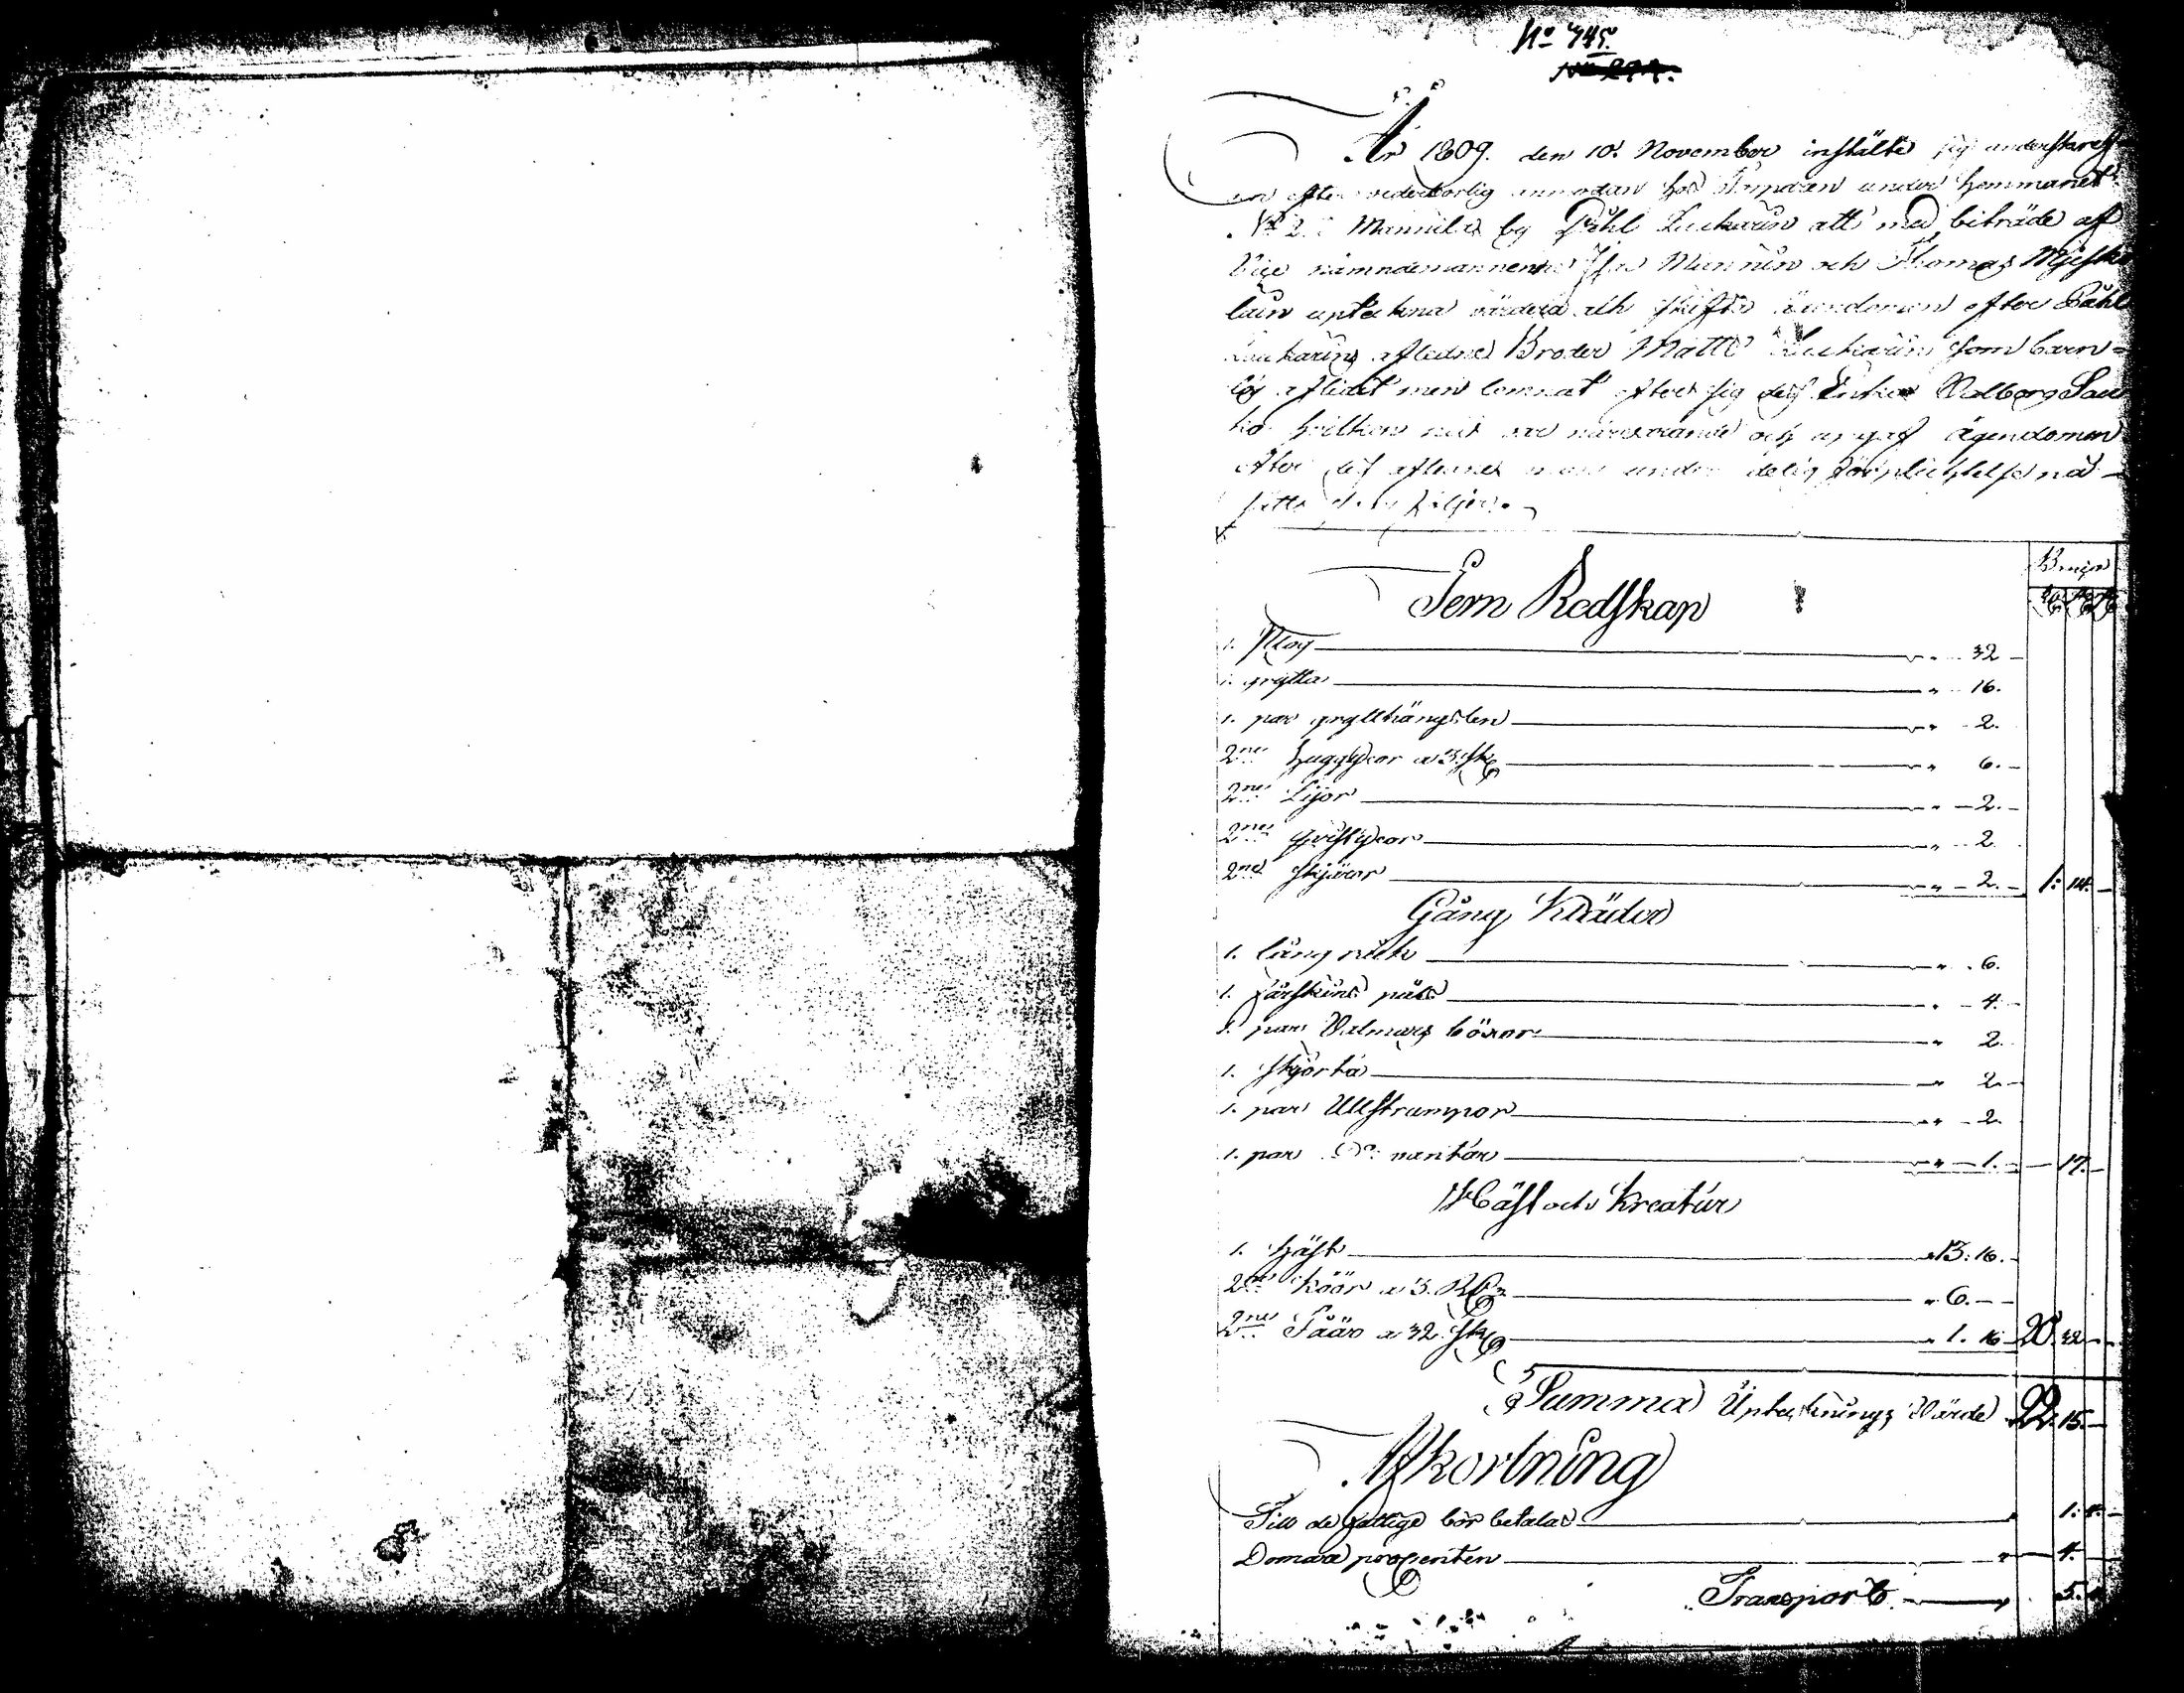 No 745.
År 1809. den 10. November instälte sig underskrefv-
en efter vederbörlig anmodan hos Inpdxen under hemmanet
No 2. i Mannila by Påhl Luukarin att med biträde af
Vice nämndemännerne Munnin och Thomas Mjesko
lain upteckna värdera och skifta ägendomen efter Påhl
Luukarins afledne Broder Matti Luukarin som barn-
lös afledit men lemnat efter sig des Enka Valborg Sau
ko hvilken nu var närvarande och upgaf ägendomen
efter des afledne man under edelig förpliktelse på
sätt som följer.
Banco
Jern Redskap
1. Plog 32
1. grytta 16.
1. par grytthängslen 2.
2ne huggyxor a 3 sk 6.
2ne Lijor 2.
2ne qvistyxor 2
2ne skjäror 2. 1: 14.
Gång Kläder
1. lång råck 6.
1. fårskins päls 4.
1. par Valmars böxor 2.
1. skjorta 2.
1. par Ullstrumpor 2
1. par Do vantar 1. 17.
Häst och Kreatur
1. häst 13: 16.
2ne Koör a 3. R 6.
2ne Fåår a 32 sk 1. 16 20. 32
Summa Uptecknings Värde 22. 15.
Afkortning
Till de fattige bör betalas 1: 4.
Domare procenten 4.
Transport 5.